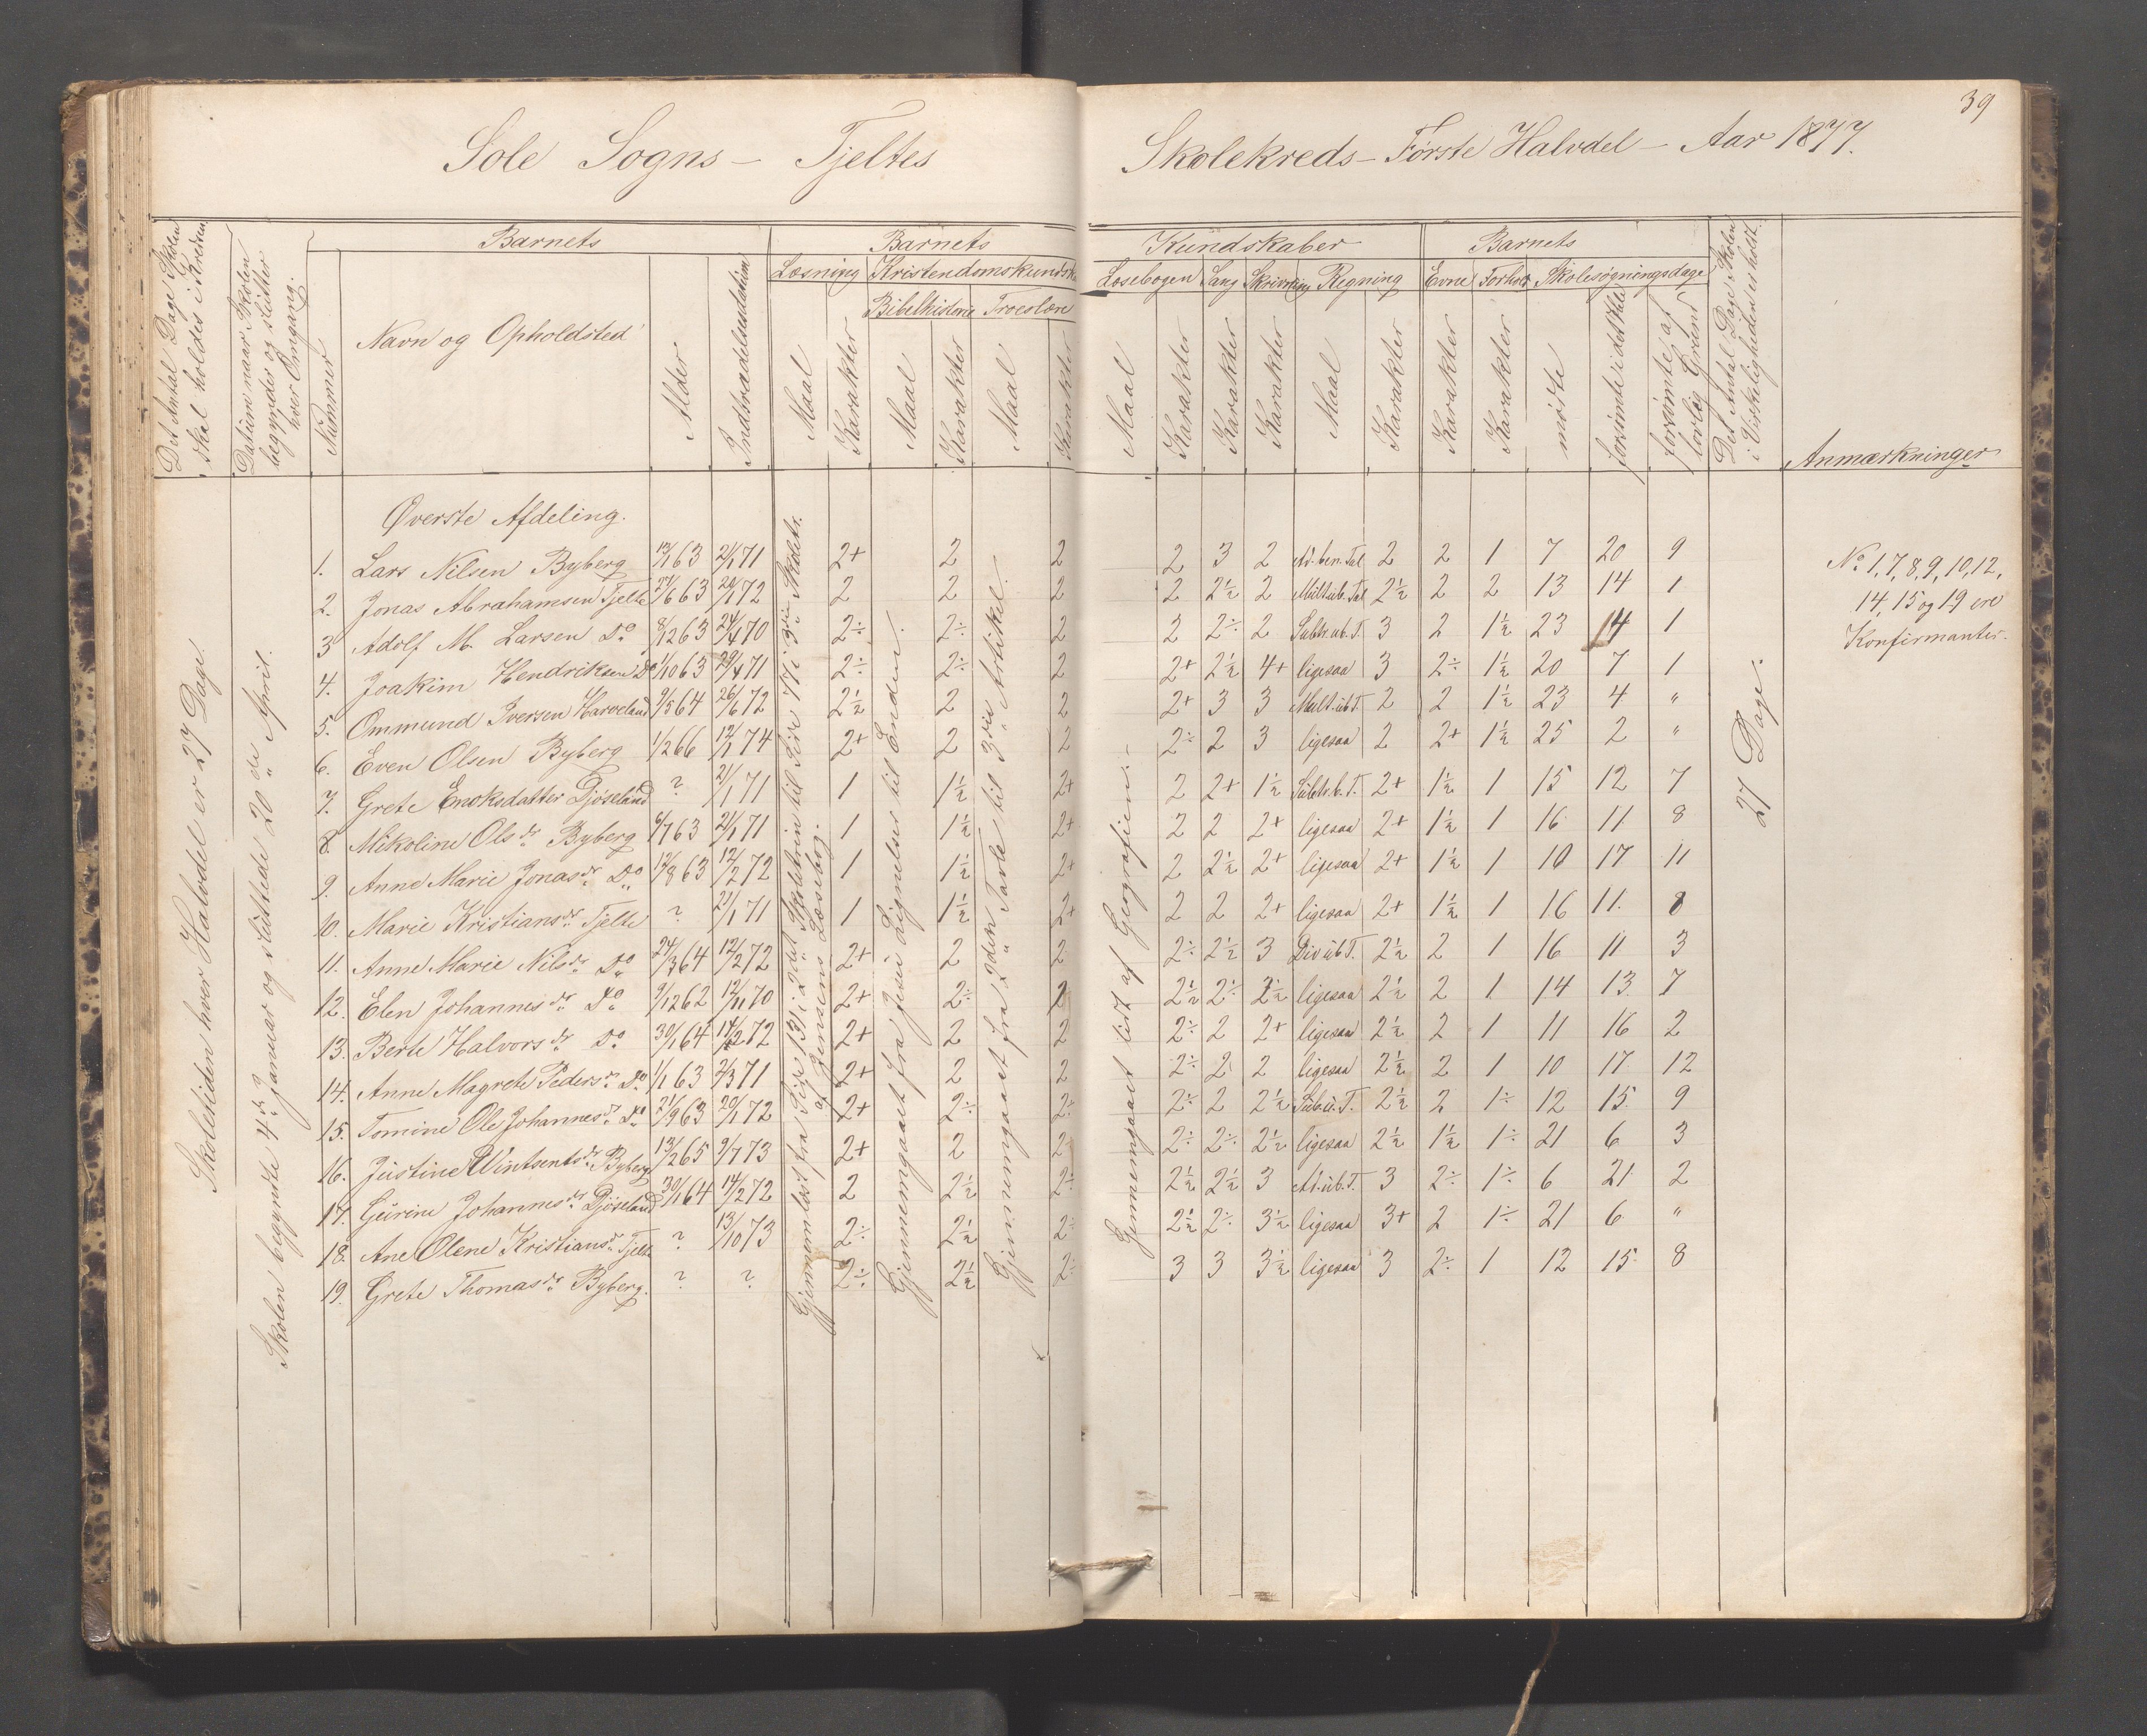 39
Sole Sogns - Tjeltes Skolekreds - Første Halvdel - Aar 1877.
Det Antal Dage Skolen skal holdes i Kredsen.
Datum naar Skolen begynder og slutter hver Omgang.
Barnets
Nummer
Navn og Opholdsted
Alder
Indtrædelsesdatum
Barnets Kundskaber
Læsning
Maal
Karakter
Kristendomskundsk
Bibelhistorie
Maal
Karakter
Troeslære
Maal
Karakter
Læsebogen
Maal
Karakter
Sang
Karakter
Skrivning
Karakter
Regning
Maal
Karakter
Barnets
Evne
Karakter
Forhold
Karakter
Skolesøgningsdage
mødte
forsømte i det Hele
forsømte af lovlig Grund
Det Antal Dage Skolen i Virkeligheden er holdt.
Anmærkninger
Skoletiden hver Halvdel er 27 Dage.
Skolen begyndte 4de Januar og sluttede 20de April.
Øverste Afdeling.
1. Lars Nilsen Byberg 13/1 63 21/1 71 2+ 2 2 2 3 2 Ad. ben. Tal 2 2 1 7 20 9
2. Jonas Abrahamsen Tjelte 27/6 63 20/1 72 2 2 2 2 2½ 2 Mult. ub. Tal 2½ 2 2 13 14 1
3 Adolf M. Larsen Do 8/12 63 24/4 70 2÷ 2÷ 2 2 2÷ 2 Subtr. ub. T. 3 2 1½ 23 14 1
4. Joakim Hendriksen Do 1/10 63 29/4 71 2÷ 2÷ 2 2+ 2½ 4+ ligesaa 3 2÷ 1½ 20 7 1
5. Ommund Iversen Harveland 9/5 64 26/6 72 2½ 2 2 2+ 3 3 Mult. ub. T 2 2 1½ 23 4 "
6. Even Olsen Byberg 1/2 66 12/1 74 2+ 2 2 2÷ 2 3 ligesaa 2 2+ 1½ 25 2 "
7. Grete Enoksdatter Djøseland ? 21/1 71 1 1½ 2+ 2 2+ 1½ Subtr. b. T. 2+ 1½ 1 15 12 7
8. Mikoline Olsdr Byberg 6/7 63 21/1 71 1 1½ 2+ 2 2 2+ ligesaa 2+ 1½ 1 16 11 8
9. Anne Marie Jonasdr Do 12/8 63 12/2 72 1 1½ 2+ 2 2½ 2+ ligesaa 2+ 1½ 1 10 17 11
10. Marie Kristiansdr Tjelte ? 23/1 71 1 1½ 2+ 2 2 2+ ligesaa 2+ 1½ 1 16 11. 8
11. Anne Marie Nilsdr Do 24/3 64 12/2 72 2+ 2 2 2÷ 2½ 3 Div ub T. 2½ 2 1 16 11 3
12. Elen Johannesdr Do 9/12 62 12/11 70 2+ 2÷ 2 2½ 2÷ 2½ ligesaa 2½ 2 1 14 13. 7
13. Berte Halvorsdr Do 30/1 64 14/2 72 2+ 2 2 2÷ 2 2+ ligesaa 2½ 2 1 11 16 2
14. Anne Magrete Pedersdr Do 1/1 63 2/3 71 2+ 2 2 2÷ 2 2 ligesaa 2½ 2 1 10 17 12
15. Tomine Ole Johannesdr Do 21/9 63 20/1 72 2+ 2÷ 2÷ 2÷ 2 2½ Sub. u. T. 2½ 2 1÷ 12 15. 9
16. Justine Wintsentsdr Byberg 13/2 65 9/7 73 2+ 2 2 2÷ 2÷ 2½ ligesaa 2½ 1½ 1÷ 21 6 3
17. Gurine Johannesdr Djøseland 30/1 64 14/2 72 2 2½ 2÷ 2½ 2½ 3 Ad. ub. T. 3 2÷ 1÷ 6 21 2
18. Ane Olene Kristiansdr Tjelte ? 13/10 73 2÷ 2½ 2÷ 2½ 2÷ 3½ ligesaa 3+ 2 1÷ 21 6 "
19. Grete Thomasdr Byberg. ? ? 2÷ 2½ 2÷ 3 3 3½ ligesaa 3 2÷ 1 12 15. 8
Gjennemlæst fra Side 131 i 2det Skoletrin til Side 47 i 3die Skoletr. af Jensens Læsebog.
Gjennemgaaet fra Jesu Lignelser til Enden.
Gjennemgaaet fra 2den Tavle til 3die Artikel.
Gjennemgaaet lidt af Geografien.
27 Dage.
No 1, 7, 8, 9, 10, 12,
14, 15 og 19 ere
Konfirmanter.